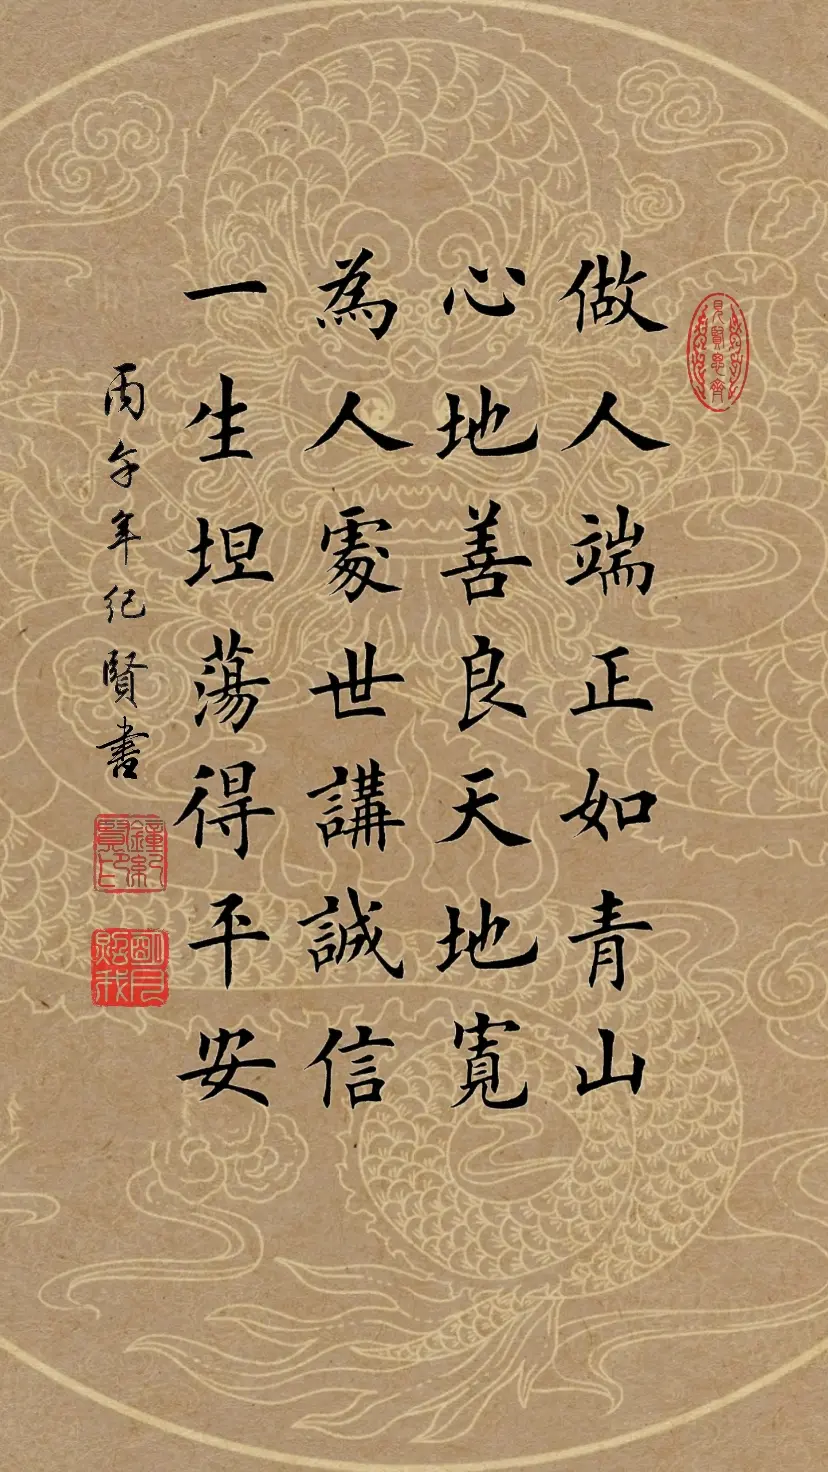 見賢思齊
做人端正如青山
心地善良天地寬
為人處世講誠信
一生坦蕩得平安
丙午年纪賢書
鐘紀賢印